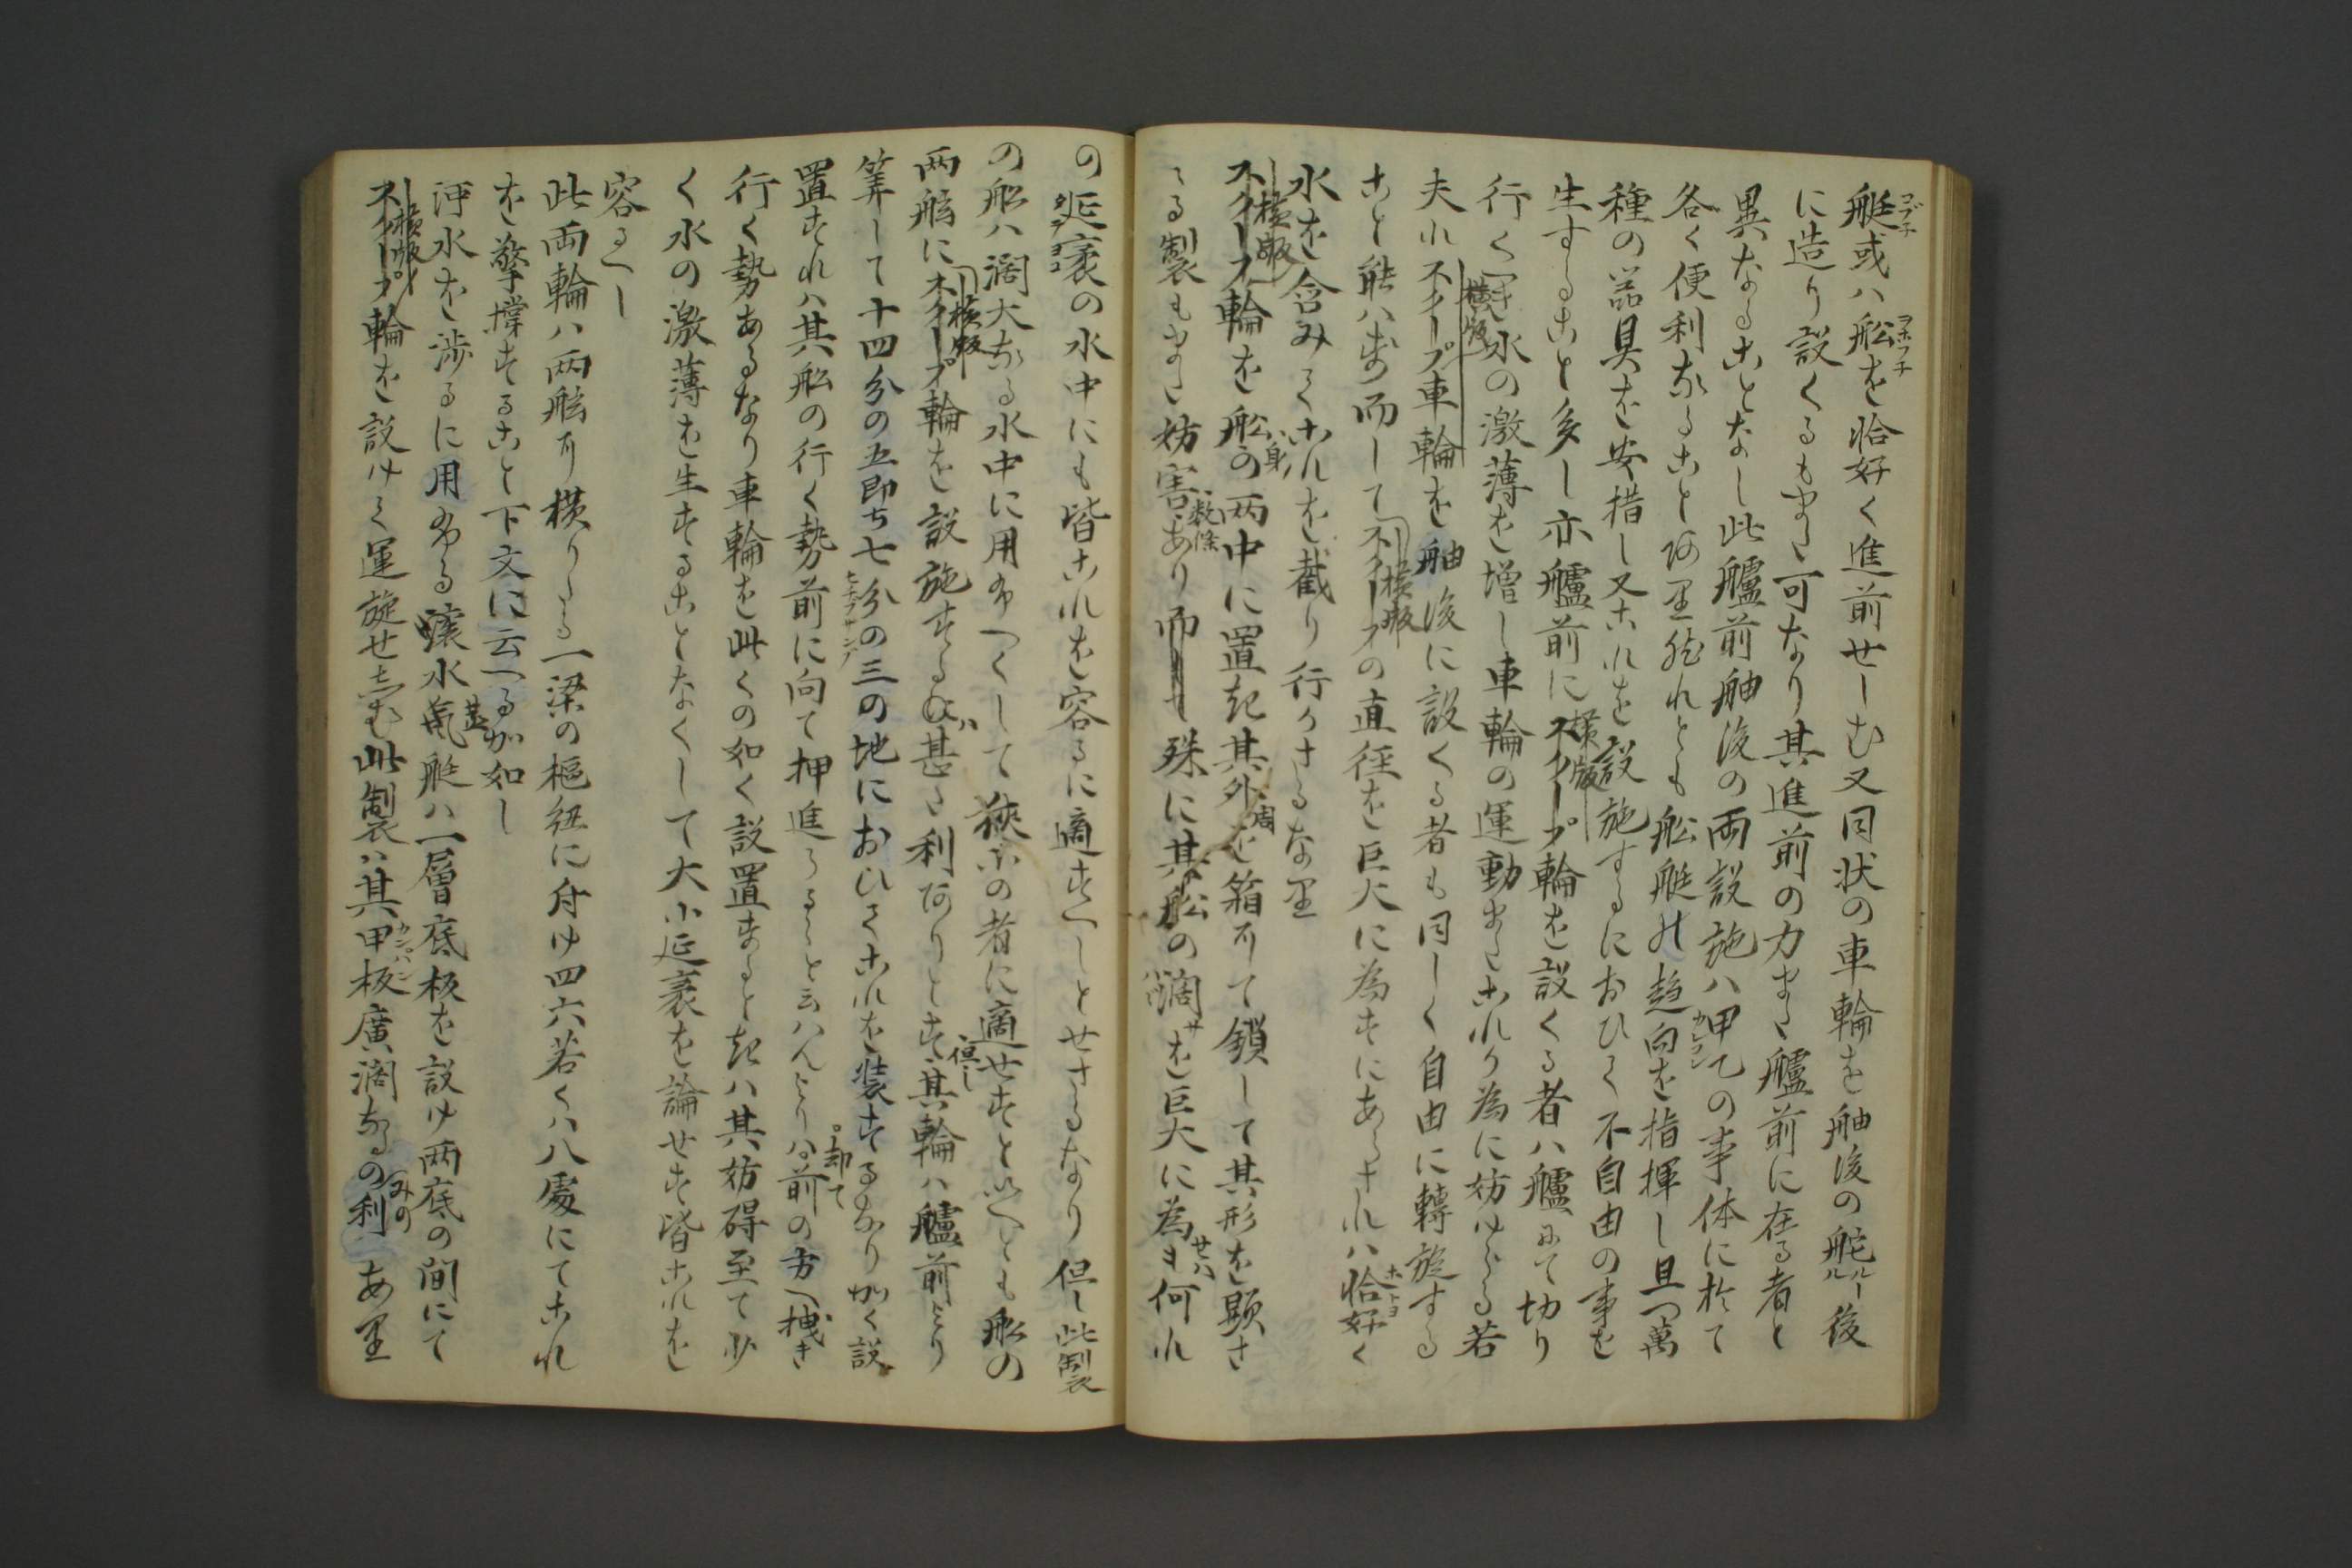 艇或ハ舩を恰好く進前せしむ又同状の車輪を舳後の舵後
に造り設くるもまた可なり其進前の力また艫前に在る者と
異なることなし此艫前舳後の両設施ハ甲ての事体に於て
各く便利なること阿里然れとも舩艇の趍向を指揮し且つ萬
種の器具を安措し又これを設施するにおひて不自由の事を
生すること多し亦艫前に横版輪を設くる者ハ艫にて切り
行くへき水の激薄を増し車輪の運動またこれか為に妨けらる若
夫れ横版車輪を舳後に設くる者も同しく自由に轉旋する
こと能ハす而して横版の直徑を巨大に為すにあらされハ恰好く
水を含みてこれを截り行かさるな里
横版輪を舩身の両中に置き其外周を箱にて鎖して其形を顕さ
る製もまた妨害数條あり而も殊に其舩の濶サを巨大に為せハ何れ
の延袤の水中にも皆これを容るに適すへしとせさるなり但し此製
の舩ハ濶大なる水中に用ふへくして狹小の者に適せすと雖とも舩の
両舷に横版輪を設施するハ甚た利阿りとす但し其輪ハ艫前より
筭して十四分の五即ち七分の三の地におひてこれを装するなり如く設
置すれハ其舩の行く勢前に向て押進らるゝと云ハんよりは却て前の方へ拽き
行く勢あるなり車輪を此くの如く設置するときハ其妨碍至て少
く水の激薄を生することなくして大小延袤を論せす皆これを
容るへし
此両輪ハ両舷に横りたる一梁の樞紐に付け四六若くハ八處にてこれ
を擎㩜すること下文に云へるか如し
河水を渉るに用ふる滾水蒸氣艇ハ一層底板を設け両底の間にて
横版輪を設けて運旋せしむ此製ハ其甲板廣濶なるのみの利あ里